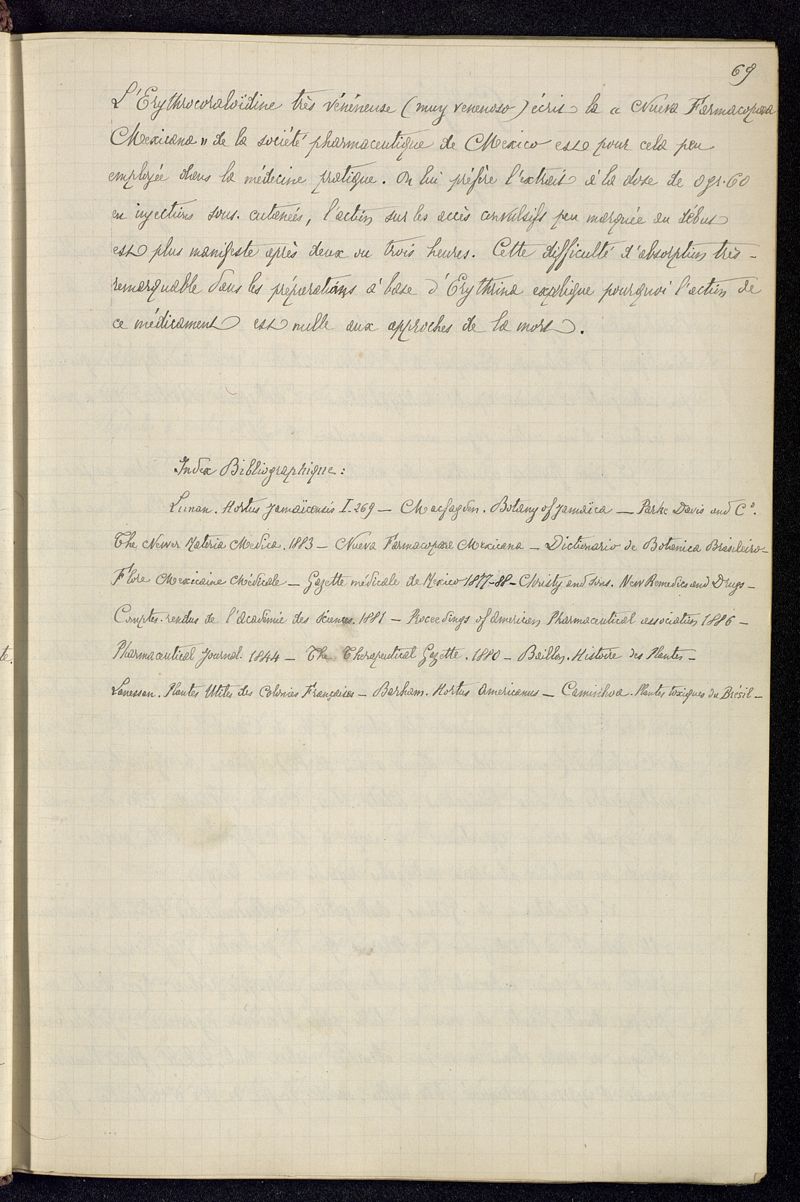 69
L'Erythrocoraloïdine très vénéneuse (muy venenoso) écrit la « Nueva Farmacopæa
Mexicana » de la société pharmaceutique de Mexico est pour cela peu
employée dans la médecine pratique. On lui préfère l'extrait à la dose de 0gr.60
en injections sous-cutanées, l'action sur les accès convulsifs peu marquée au début
est plus manifeste après deux ou trois heures. Cette difficulté d'absorption très-
remarquable dans les préparations à base d'Erythrina explique pourquoi l'action de
ce médicament est nulle aux approches de la mort.
Index Bibliographique:
Lunan. Hortus Jamaïcensis I-269 — Macfagden. Botany of Jamaïca — Parke Davis and Cº.
The Newer Materia Medica. 1883 — Nueva Farmacopæa Mexicana — Dictionario de Botanica Brasileira —
Flore Mexicaine Médicale — Gazette médicale de Mexico 1877-88 — Christy and sons. New Remedies and Drugs —
Comptes-rendus de l'académie des sciences. 1881 — Proceedings of American Pharmaceutical association 1886 —
Pharmaceutical Journal. 1844 — The Therapeutical Gazette. 1880 — Baillon. Histoire des Plantes —
Lanessan. Plantes Utiles des Colonies Françaises — Barham. Hortus Americanus — Caminhoa. Plantes toxiques du Brésil —
te.